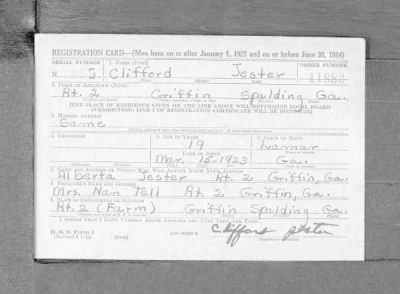 REGISTRATION CARD—(Men born on or after January 1, 1922 and on or before June 30, 1924)
SERIAL NUMBER 1. NAME (Print) ORDER NUMBER
N 5 Clifford Jester
2. PLACE OF RESIDENCE (Print)
Rt. 2 Griffin Spalding Ga.
[THE PLACE OF RESIDENCE GIVEN ON THE LINE ABOVE WILL DETERMINE LOCAL BOARD
JURISDICTION; LINE 2 OF REGISTRATION CERTIFICATE WILL BE IDENTICAL]
3. MAILING ADDRESS
Same
4. TELEPHONE 5. AGE IN YEARS 6. PLACE OF BIRTH
19 Lamar
DATE OF BIRTH
Mar. 15-1923 Ga.
7. NAME AND ADDRESS OF PERSON WHO WILL ALWAYS KNOW YOUR ADDRESS
Alberta Jester Rt 2 Griffin, Ga.
8. EMPLOYER'S NAME AND ADDRESS
Mrs. Nan Tell Rt 2 Griffin, Ga.
9. PLACE OF EMPLOYMENT OR BUSINESS
Rt. 2 (Farm) Griffin Spalding Ga.
I AFFIRM THAT I HAVE VERIFIED ABOVE ANSWERS AND THAT THEY ARE TRUE.
Clifford Jester
D. S. S. Form 1